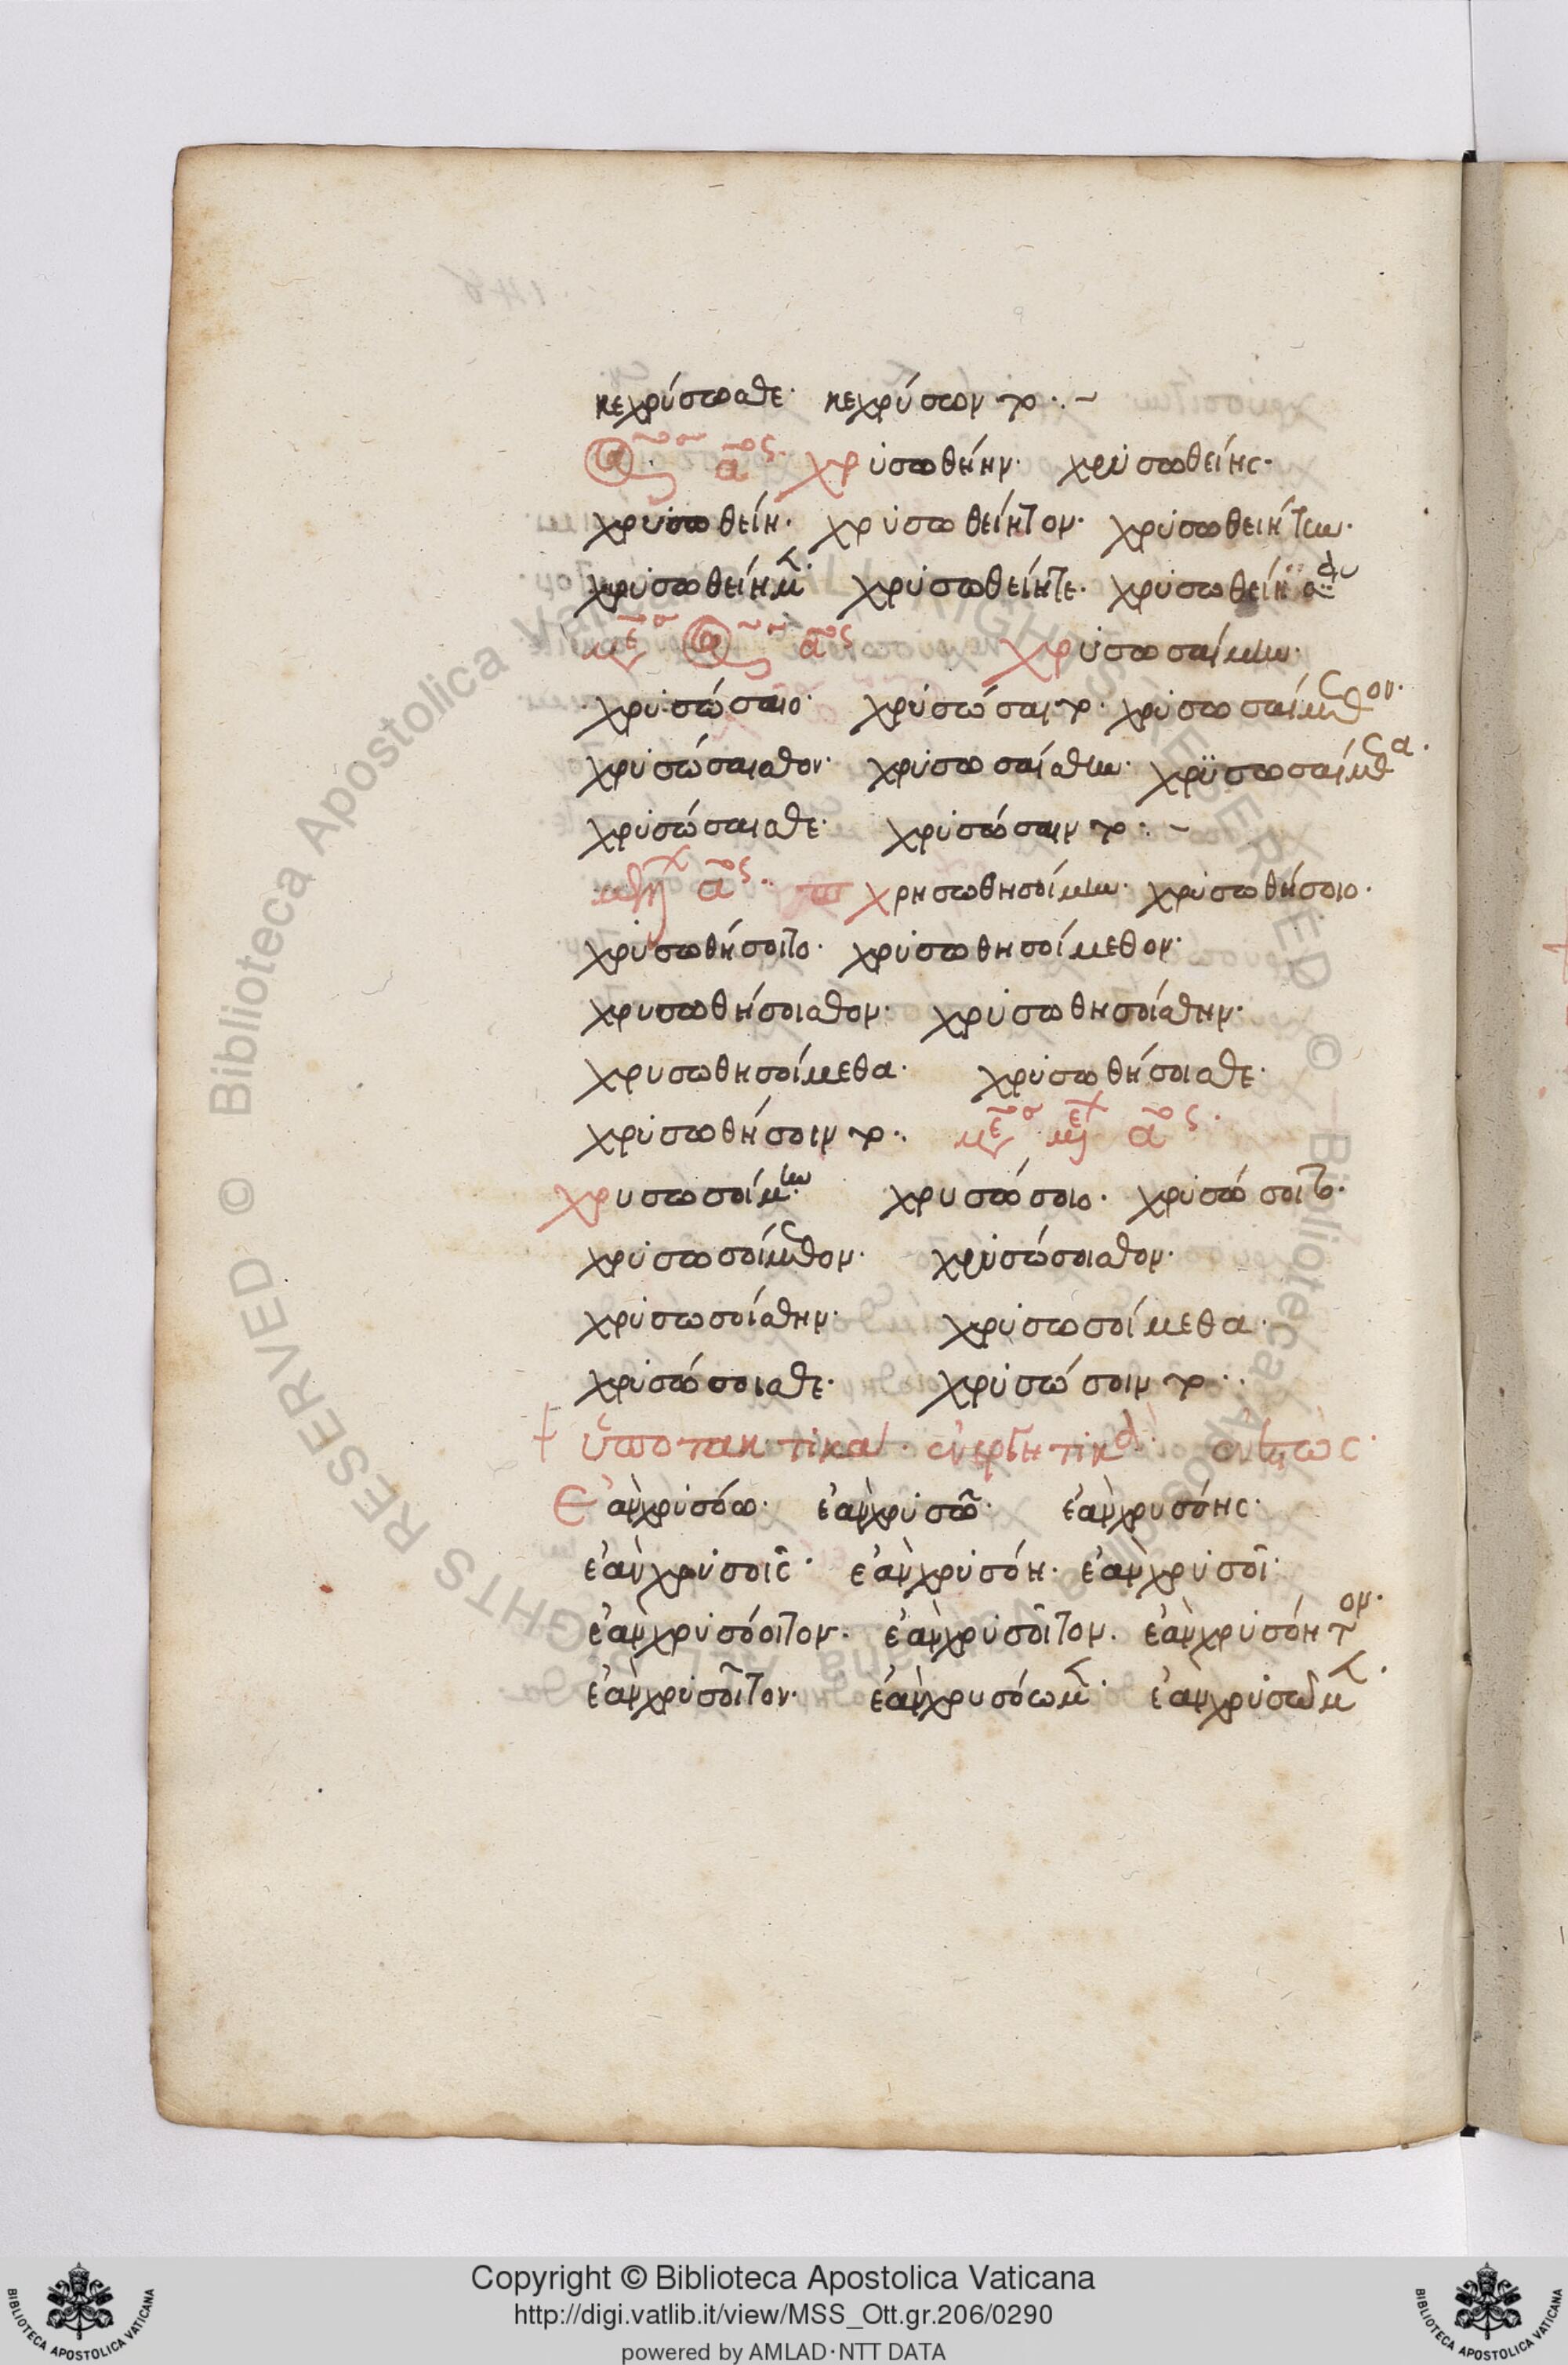 κεχρύσωσθε· κεχρύσωντο·
ἀόριστος αος χρυσωθείην· χρυσωθείης·
χρυσωθείη· χρυσωθείητον· χρυσωθειήτην·
χρυσωθείημεν· χρυσωθείητε· χρυσωθείησαν
μέσος ἀόριστος αος χρυσωσαίμην·
χρυσώσαιο· χρυσώσαιτο· χρυσωσαίμεθον·
χρυσώσαισθον· χρυσωσαίσθην· χρϋσωσαίμεθα·
χρυσώσαισθε· χρυσώσαιντο·
μέλλων αος χρησωθησοίμην· χρυσωθήσοιο·
χρυσωθήσοιτο· χρυσωθησοίμεθον·
χρυσωθήσοισθον· χρυσωθησοίσθην·
χρυσωθησοίμεθα· χρυσωθήσοισθε·
χρυσωθήσοιντο· μέσος μέλλων αος·
χρυσωσοίμην· χρυσώσοιο· χρυσώσοιτο·
χρυσωσοίμεθον· χρυσώσοισθον·
χρυσωσοίσθην· χρυσωσοίμεθα·
χρυσώσοισθε· χρυσώσοιντο·
ὑποτακτικὰ· ἐνεργητικὰ· ἐνεστῶς·
Ἐὰν χρυσόω· ἐὰν χρυσῶ· ἐὰν χρυσόης·
ἐὰν χρυσοῖς· ἐὰν χρυσόη· ἐὰν χρυσοῖ·
ἐὰν χρυσόοιτον· ἐὰν χρυσοῖτον· ἐὰν χρυσόητον·
ἐὰν χρυσοῖτον· ἐὰν χρυσόωμεν· ἐὰν χρυσῶμεν·
Copyright © Biblioteca Apostolica Vaticana
http://digi.vatlib.it/view/MSS_Ott.gr.206/0290
powered by AMLAD·NTT DATA